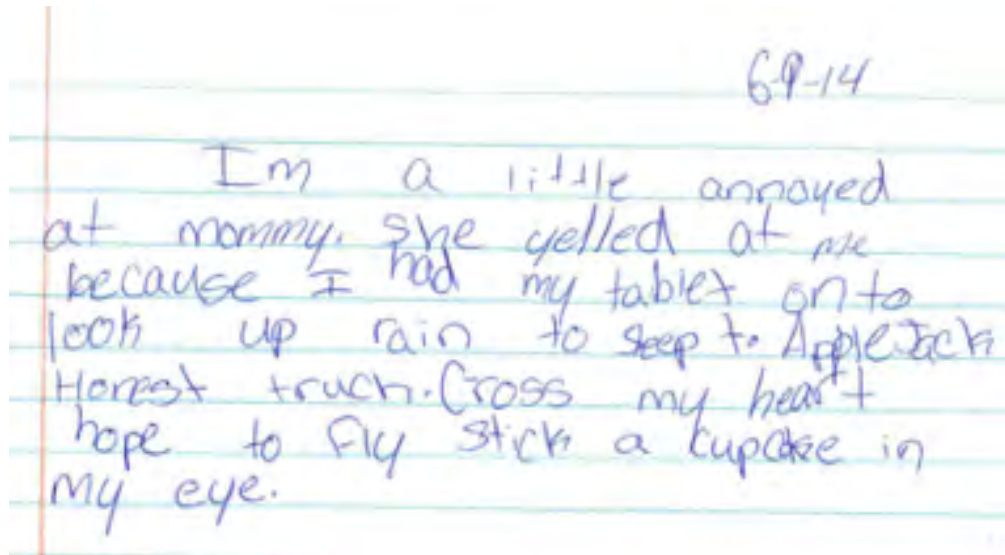 6-9-14
Im a little annoyed
at mommy. She yelled at me
because I had my tablet on to
look up rain to sleep to. AppleJack
Honest truch. Cross my heart
hope to fly stick a cupcake in
my eye.